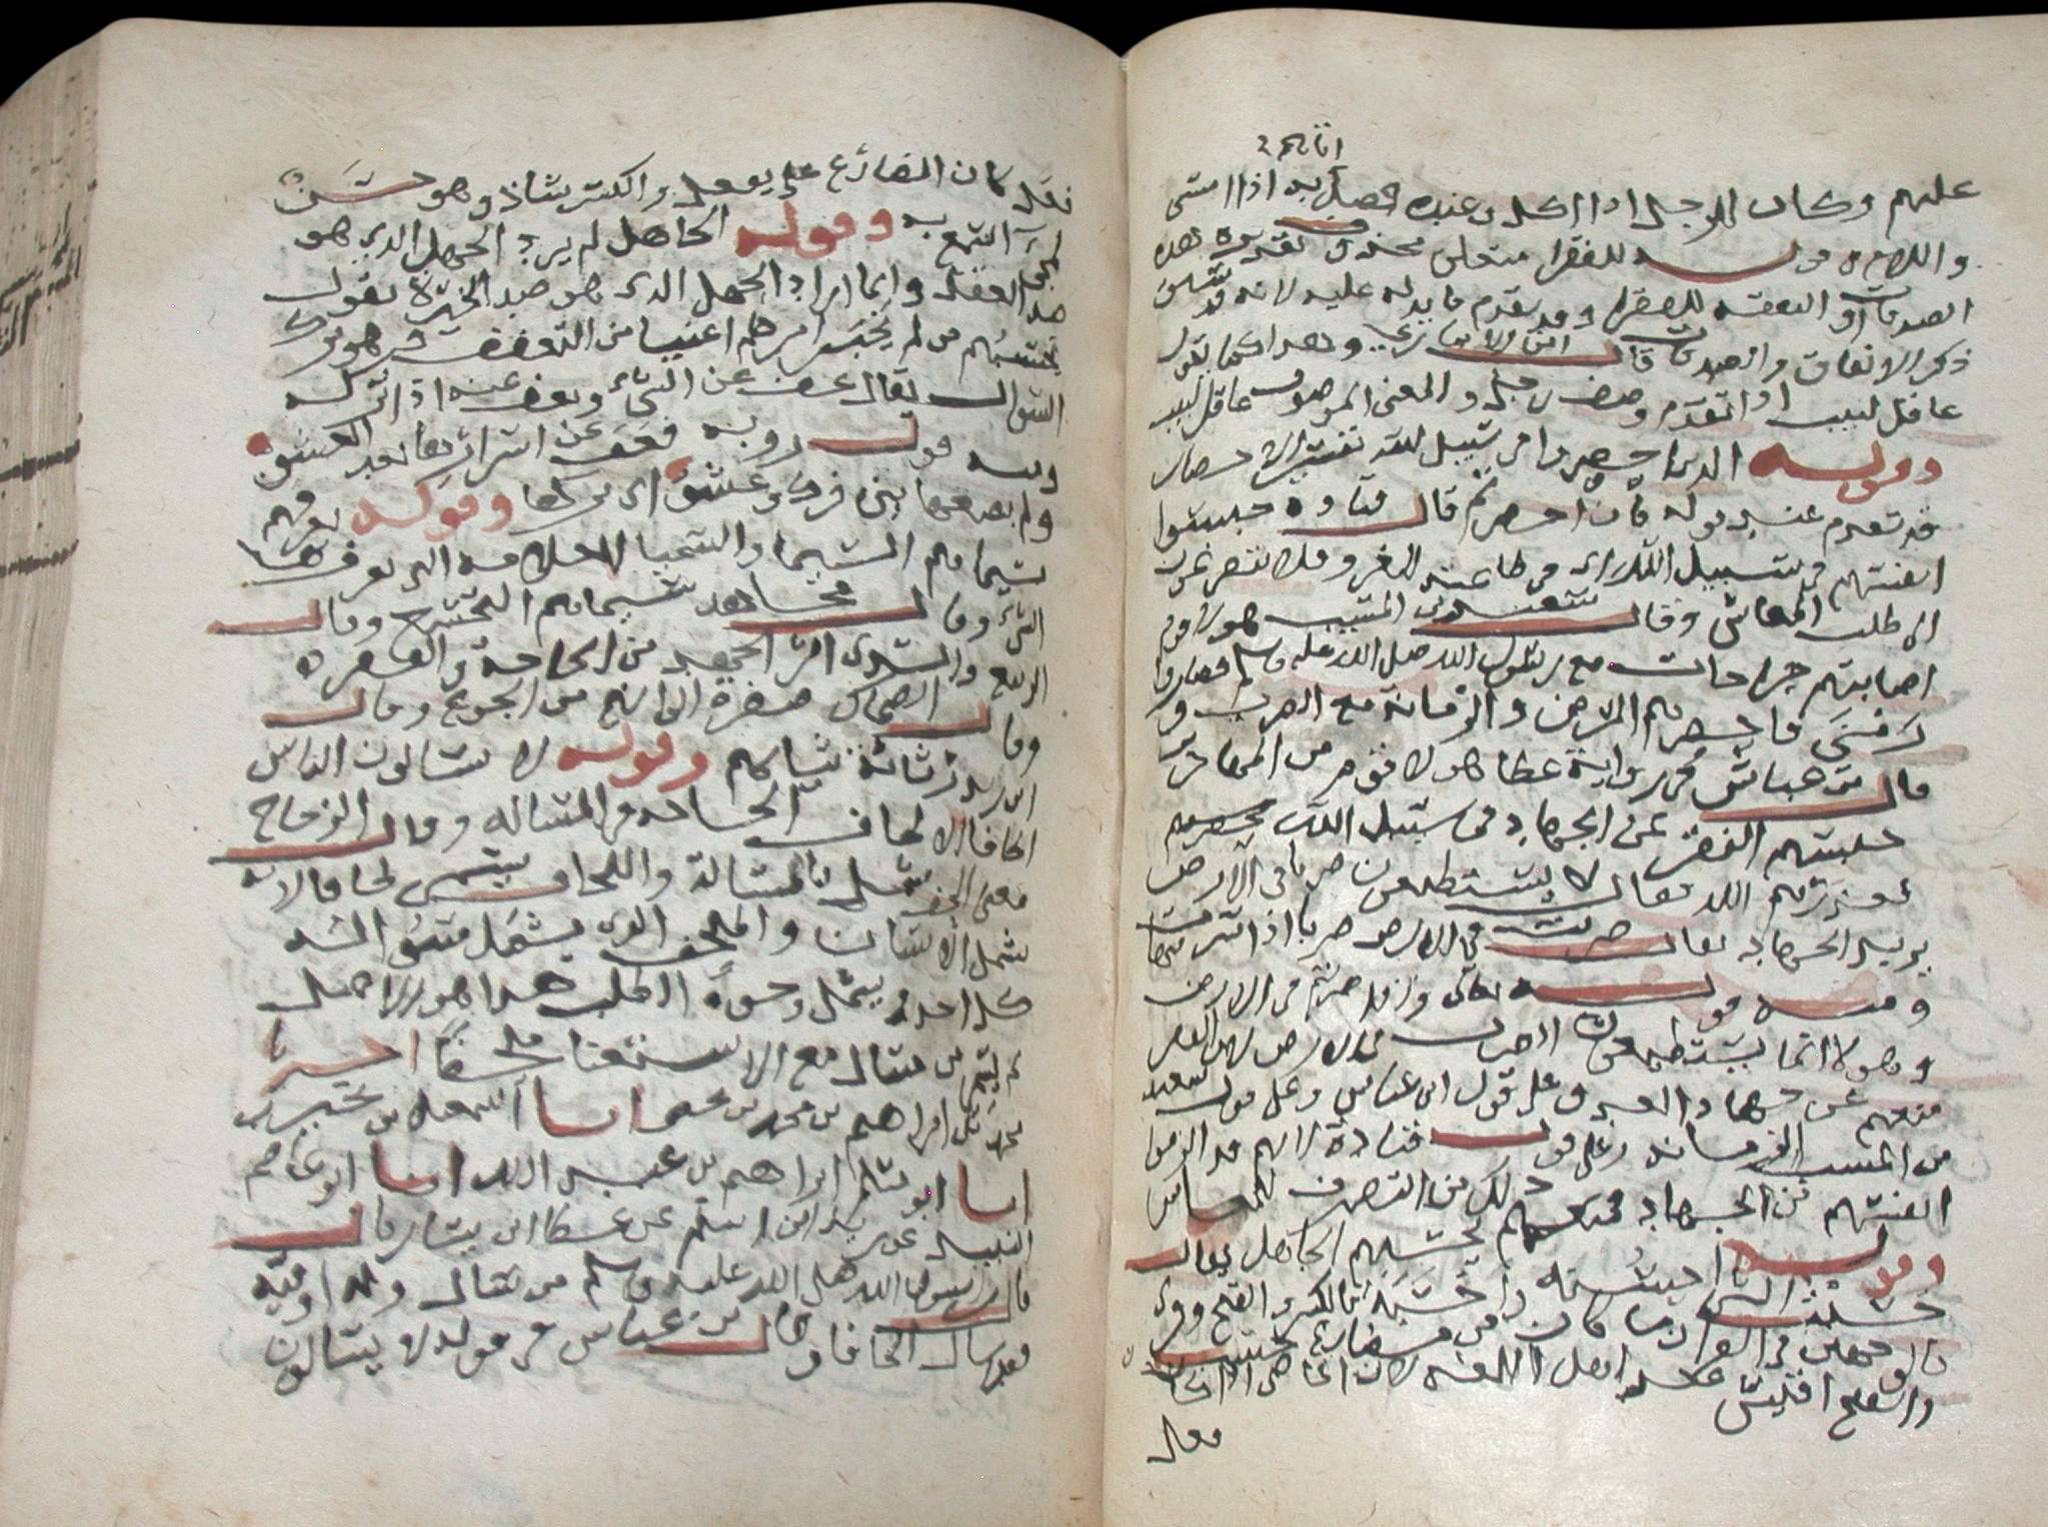 عليهم وكان الرجل اذا اكل من عنده اذا امسى
والله قوله للفقرا متعلق بمحذوف تقديره هذه
الصدقات او النفقة للفقرا وقد تقدم ما يدل عليه لانه قد سبق
ذكر الانفاق والصدقات قال ابن الانباري وهذا كما تقول
عاقل لبيب اذا تقدم وصف رجل والمعنى الموصوف عاقل لبيب
وقوله الذين احصروا في سبيل الله تفسير الاحصار
قد تقدم عند قوله فان احصرتم قال قتادة حبسوا
انفسهم في سبيل الله اي في طاعته للغزو فلا يتفرغون
الى طلب المعاش وقال سعيد بن المسيب هولا قوم
اصابتهم جراحات مع رسول الله صلى الله عليه وسلم فصاروا
زمنى فاحصرهم المرض والزمانة مع الضرب في
قال بن عباس في رواية عطا هولا قوم من المهاجرين
حبسهم الفقر عن الجهاد في سبيل الله
فعذرهم الله فقال لا يستطيعون ضربا في الارض
يريد الجهاد يقال ضربت في الارض ضربا اذا سرت فيها
ومنه قوله تعالى واذا ضربتم في الارض
وهولا انما لا يستطيعون الضرب في الارض لان الفقر
منعهم عن جهاد العدو وعلى قول ابن عباس وعلى قول سعيد
بن المسيب الزمانة وعلى قول قتادة لانهم قد الزموا
انفسهم من الجهاد فمنعهم ذلك من التصرف للمعاش
وقوله يحسبهم الجاهل يقال
حسبت الشيا احسبه واحسبه بالكسر والفتح وقرى
بالوجهين في القران ما كان من مضارع حسب
والفتح اقيس عند اهل اللغة لان الماضي اذا كان
فعل
فعل كان المضارع على يفعل والكسر شاذ وهو حسن
لمجي السمع به وقوله الجاهل لم يرد الجهل الذي هو
ضد العقل وانما اراد الجهل الذي هو ضد الخبرة يقول
يحسبهم من لم يخبر امرهم اغنيا من التعفف وهو ترك
السوال يقال عف عن الشي وتعفف عنه اذا تركه
ومنه قول روبه فعف عن اسرارها بعد العسق
ولم يضعها بين فرك وعشق اي تركها وقوله تعرفهم
بسيماهم السيما والسيميا العلامة التي يعرف بها
الشي وقال مجاهد سيماهم التخشع وقال
الربيع والسدي اثر الجهد من الحاجة والفقر
وقال الضحاك صفرة الوانهم من الجوع وقال
ابن زيد رثاثة ثيابهم وقوله لا يسالون الناس
الحافا الالحاف الالحاح في المسالة وقال الزجاج
معنى الحف شمل بالمسالة واللحاف يسمى لحافا لانه
يشمل الانسان والملحف الذي يشمل سوال
كل احد وحوه الطلب هذا هو الاصل
ثم يسمى من سال مع الاستغنا ملحفا اخبرنا
محمد بن ابراهيم بن محمد بن يحيى انبا اسمعيل بن نجيد
انبا ابو مسلم ابراهيم بن عبد الله انبا ابو عاصم
النبيل عن زيد ابن اسلم عن عطا ابن يسار قال
قال رسول الله صلى الله عليه وسلم من سال وله اوقية
فقد سال الحافا وقال بن عباس في قوله لا يسالون